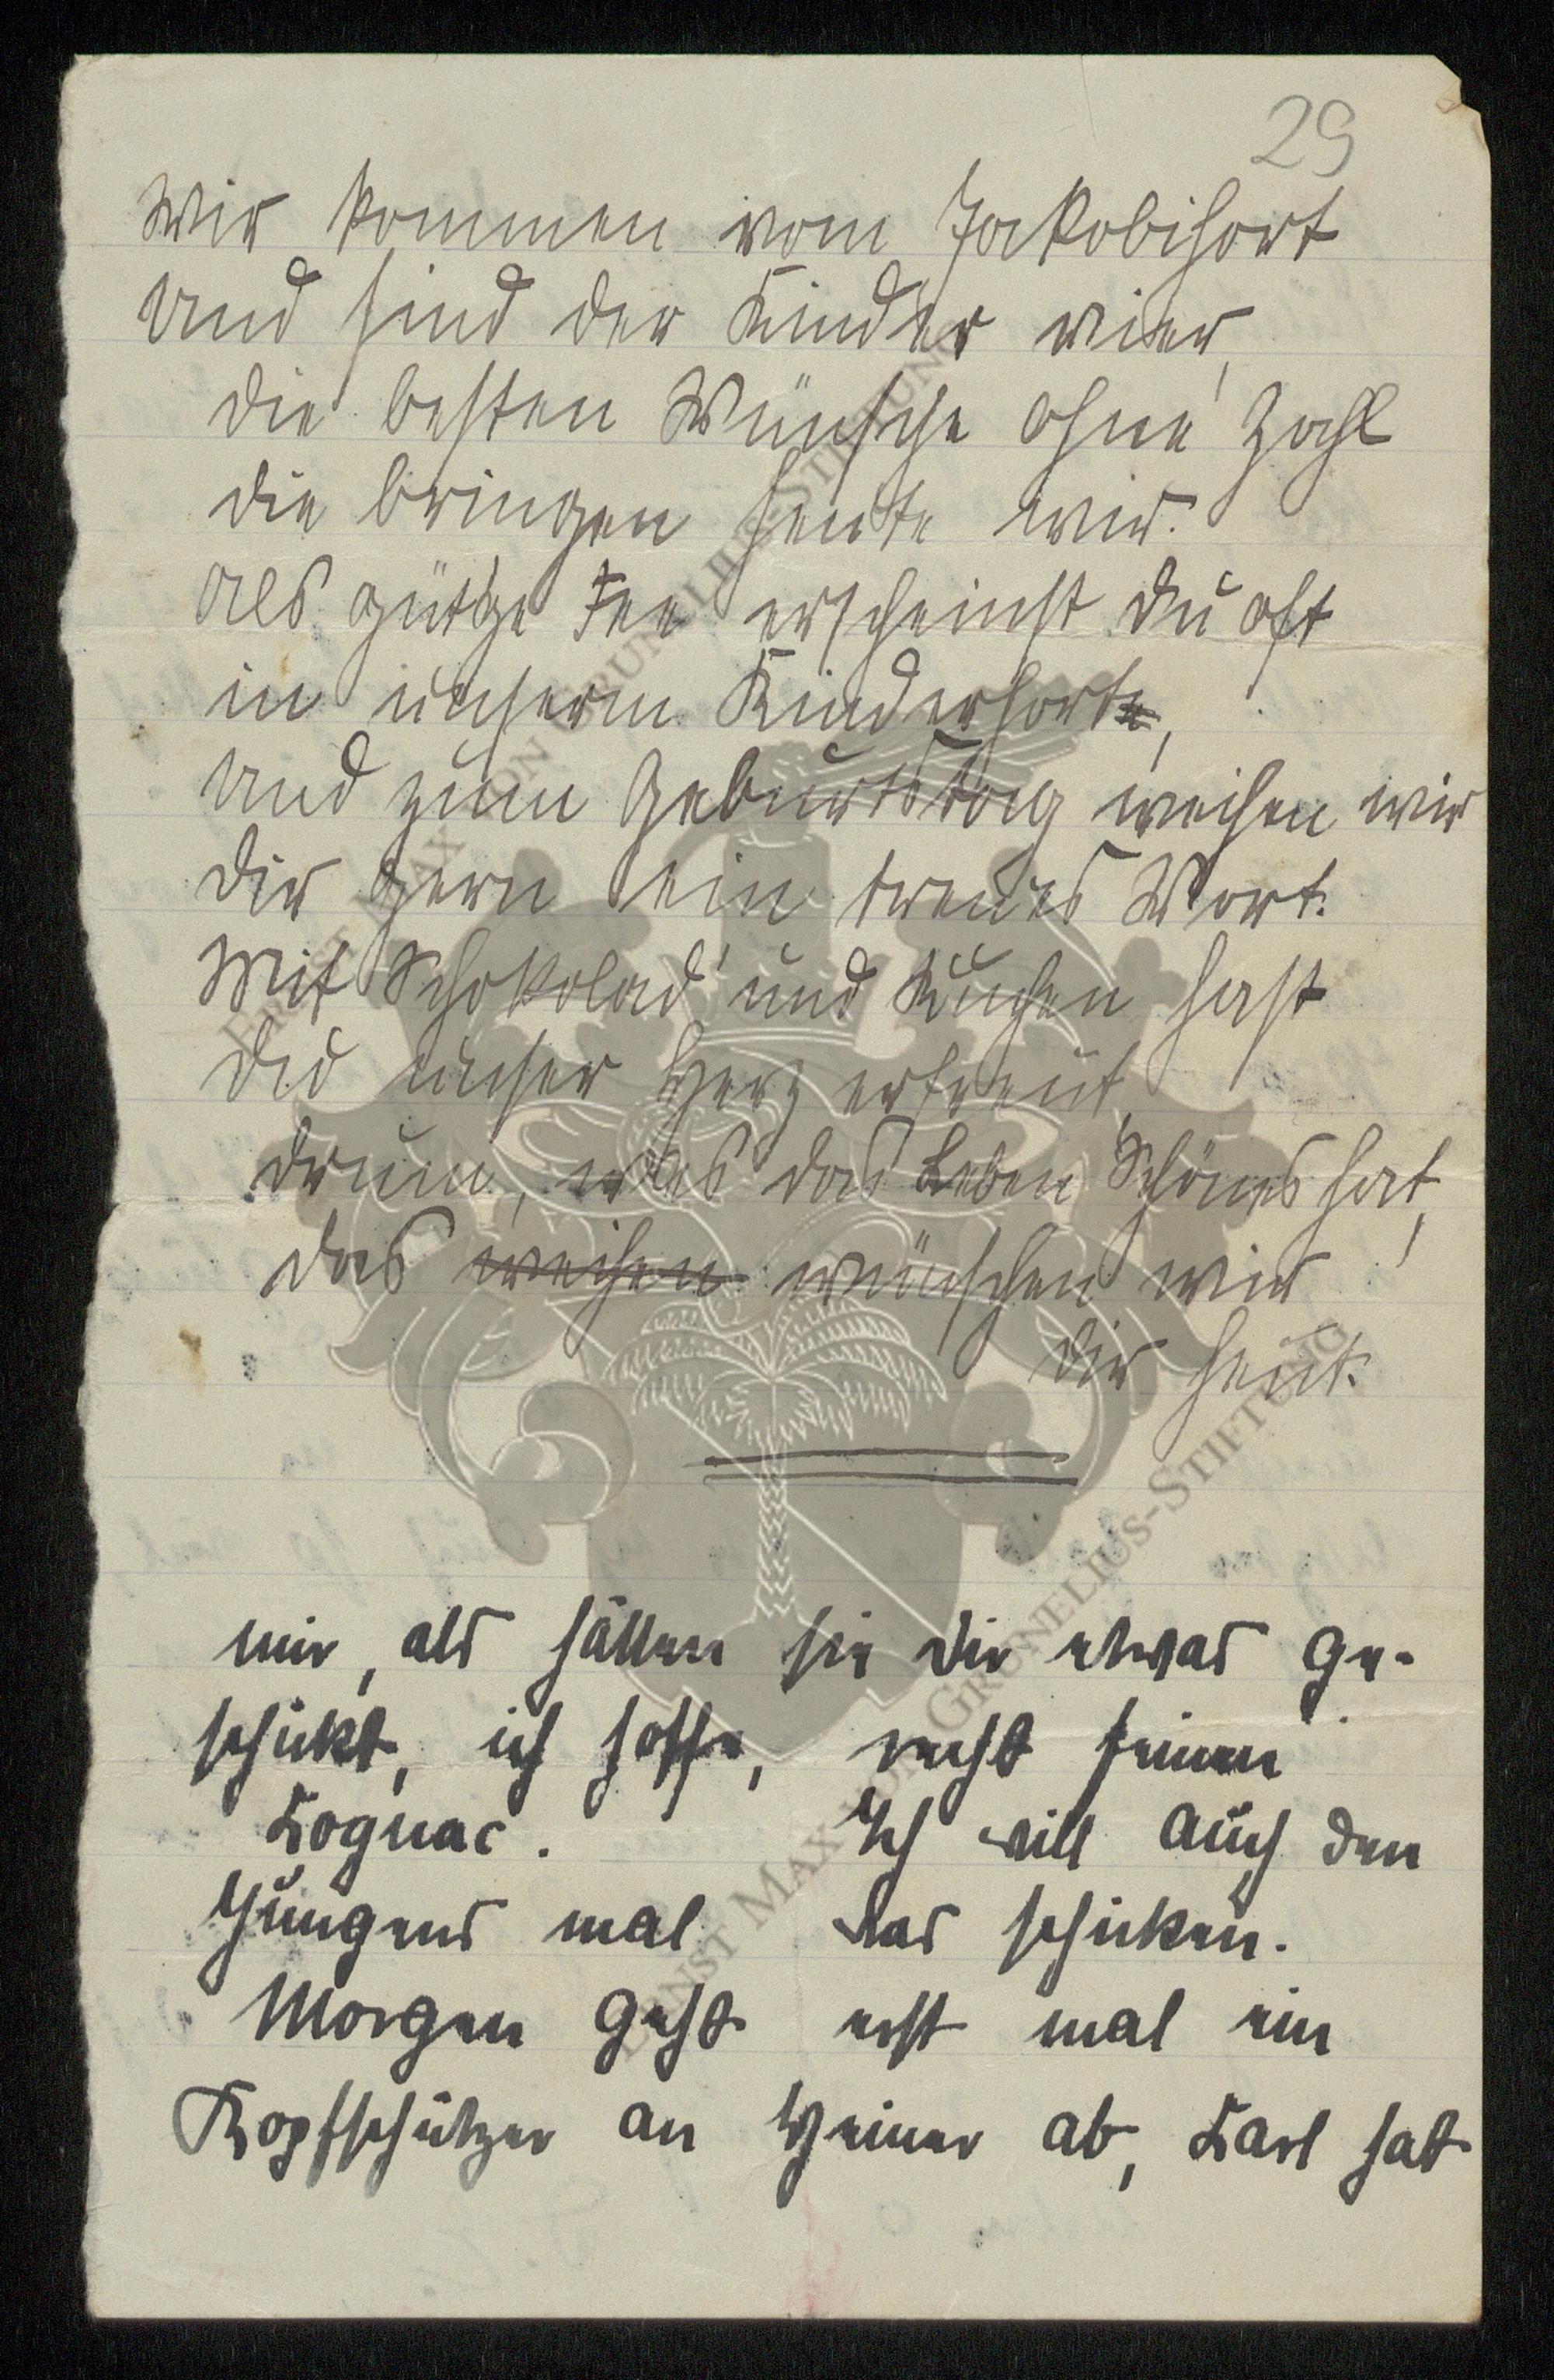 29
Wir kommen vom Jakobihort
und sind der Kinder vier,
die besten Wünsche ohne Zahl
die bringen heute wir.
Als güt'ge Fee erscheinst du oft
in unserm Kinderhorte,
und zum Geburtstag weihen wir
dir gern ein treues Wort.
Mit Schokolad' und Kuchen hast
du unser Herz erfreut,
drum, was das Leben Schönes hat,
das weihen wünschen wir
dir heut.
mir, als hätten sie Dir etwas ge-
schickt, ich hoffe, recht feinen
Cognac. Ich will auch den
Jungens mal was schicken.
Morgen geht erst mal ein
Kopfschützer an Heiner ab, Karl hat
ERNST MAX VON GRUNELIUS-STIFTUNG
ERNST MAX VON GRUNELIUS-STIFTUNG